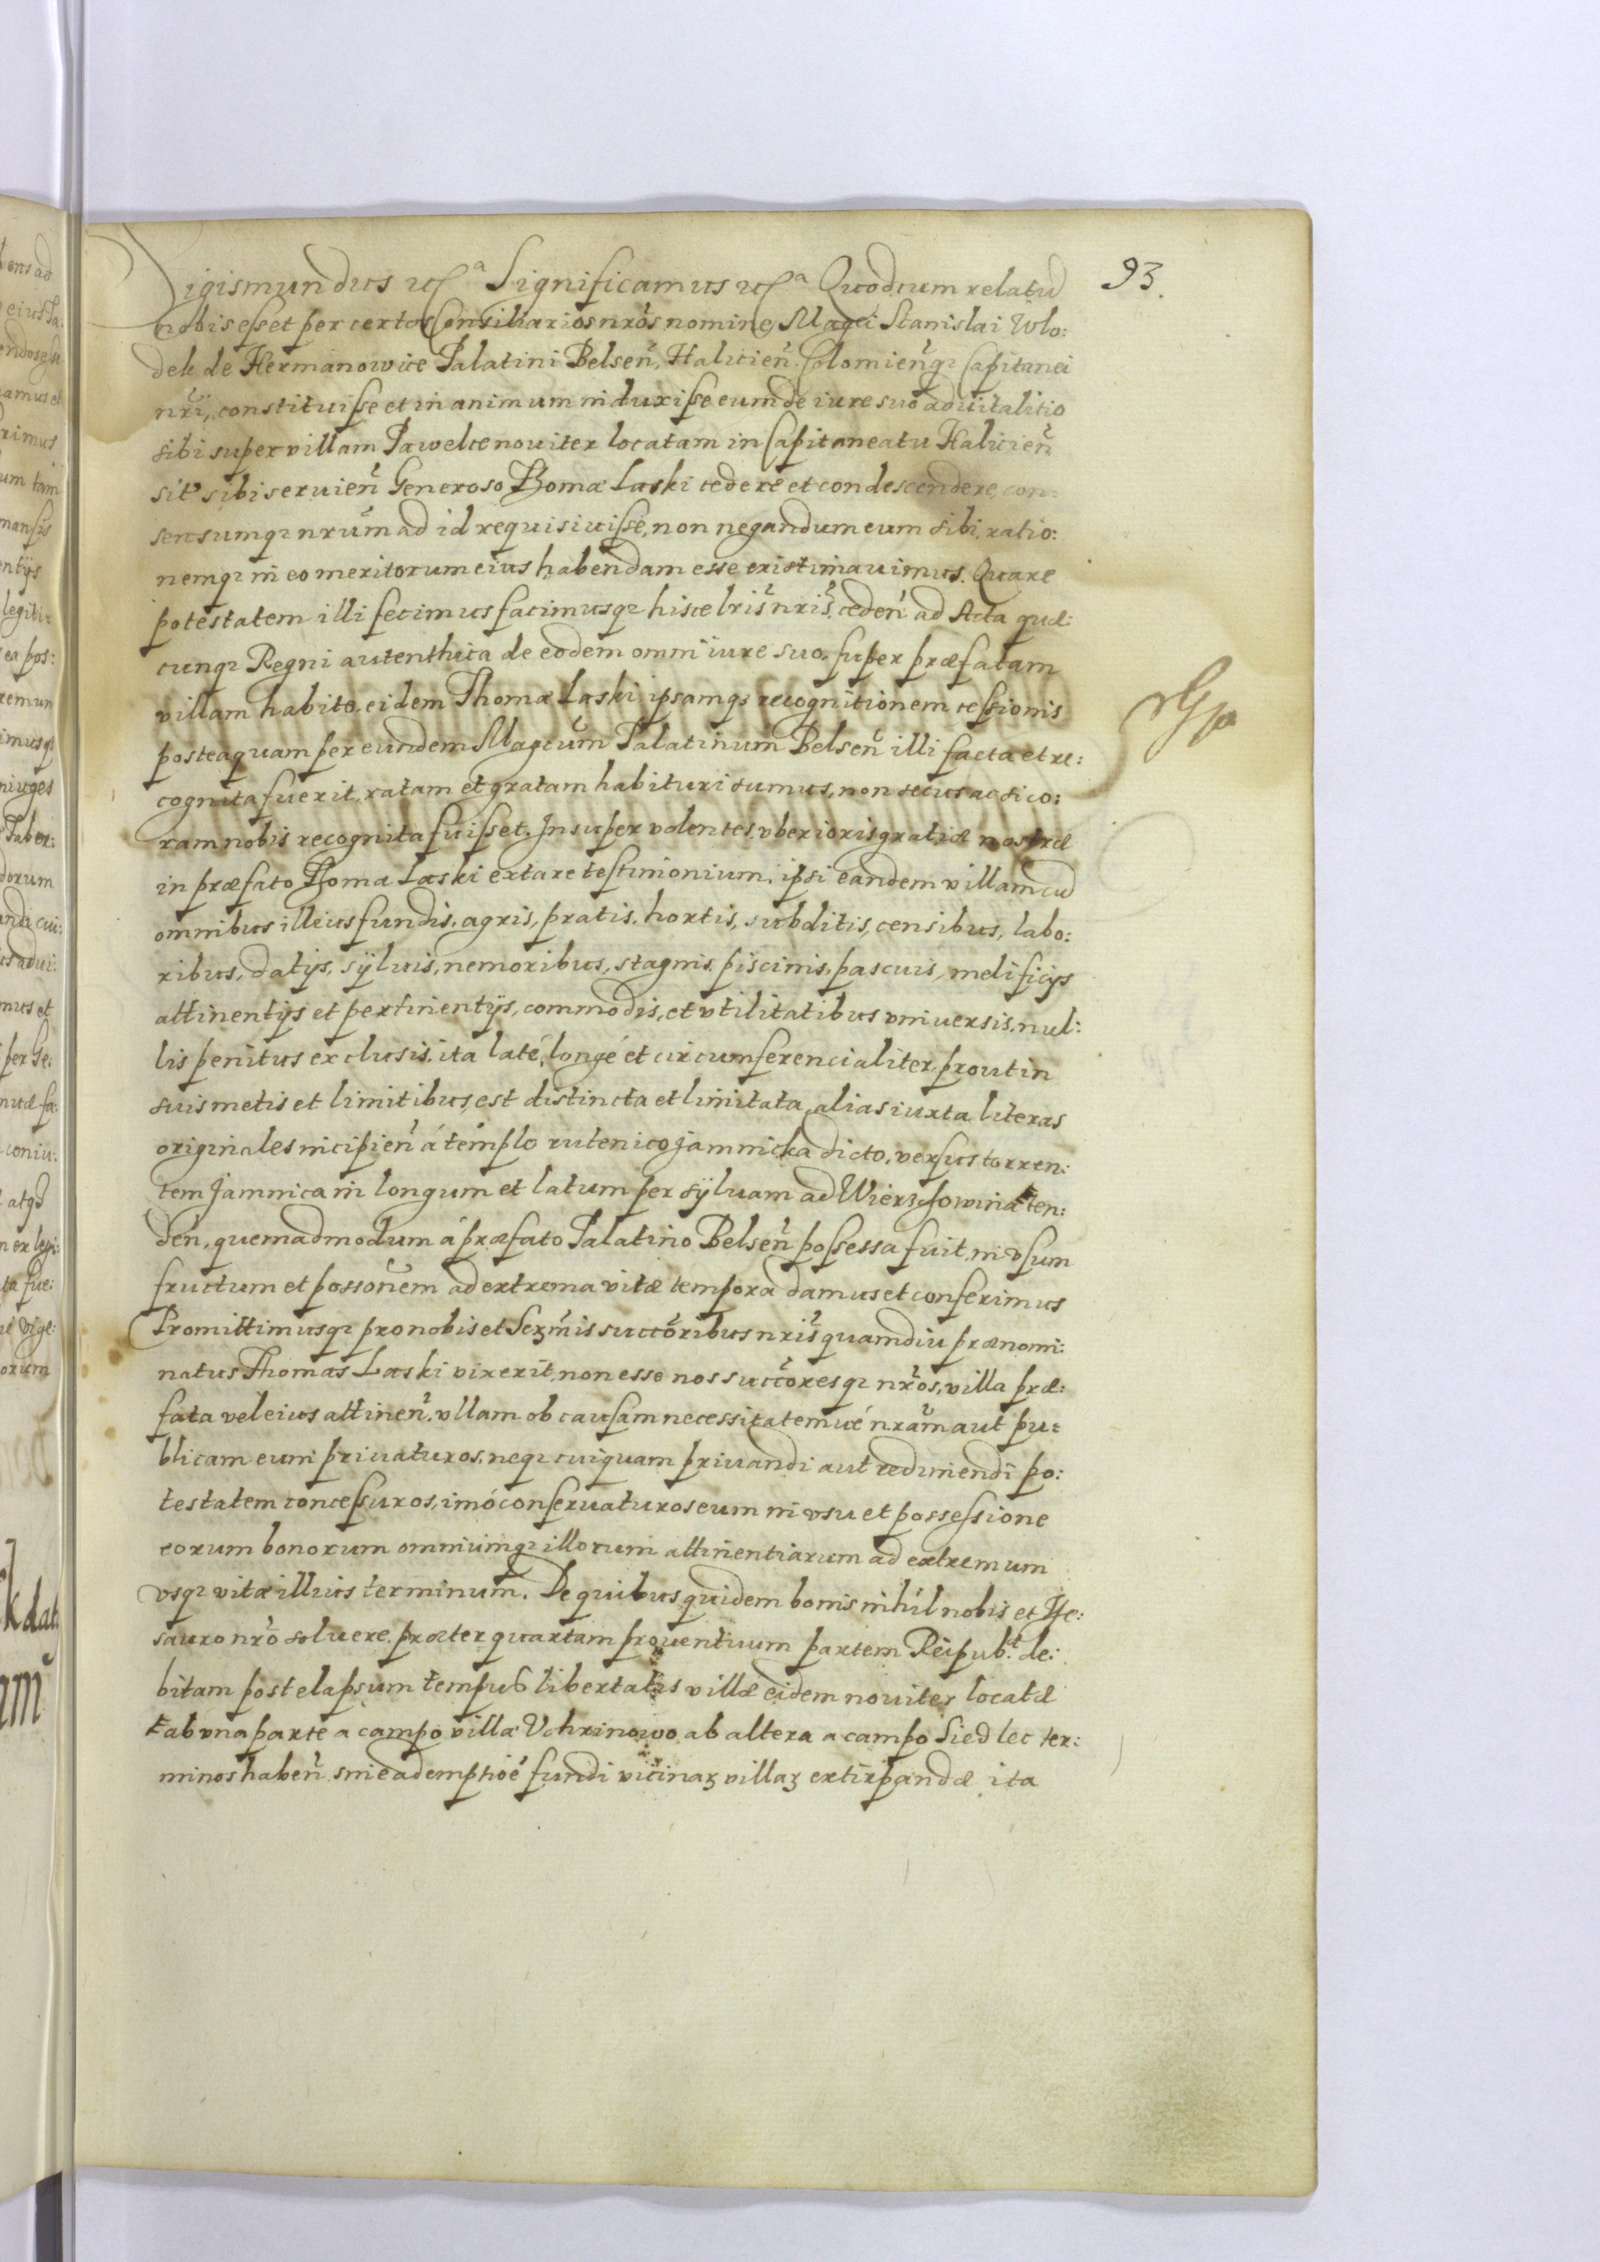 93.
Sigismundus etca Significamus etca Quod cum relatũ
nobis esset per certos Consiliarios nrõs nomine Magci Stanislai Wlo:
dek de Hermanowice Palatini Belseñ, Halicieñ Colomieñq3 Capitanei
nrĩ, constituisse et in animum induxisse eum de iure suo aduitalitio
sibi super villam Pawelce nouiter locatam in Capitaneatu Halicieñ
sibi seruieñ Generoso Thomæ Laski cedere et condescendere, con:
sensumq3 nrũm ad id requisiuisse, non negandum eum sibi, ratio:
nemq3 in eo meritorum eius habendam esse existimauimus. Quare
potestatem illi fecimus facimusq3 hisce lrĩs nrĩs, cedeñ ad Acta quæ:
cunq3 Regni autenthica de eodem omni iure suo, super præfatam
villam habito, eidem Thomæ Laski ipsamq3 recognitionem cessionis
posteaquam per eundem Magcũm Palatinum Belseñ illi facta et re:
cognita fuerit, ratam et gratam habituri sumus, non secus ac si co:
ram nobis recognita fuisset. Insuper volentes vberioris gratiæ nostræ
in præfato Thoma Laski extare testimonium, ipsi eandem villam cũ
omnibus illius fundis, agris, pratis, hortis, subditis, censibus, labo:
ribus, datijs, syluis, nemoribus, stagnis, piscinis, pascuis, melificijs
attinentijs et pertinentijs, commodis, et vtilitatibus vniuersis, nul:
lis penitus exclusis, ita laté, longé et circumferencialiter prout in
suis metis et limitibus est distincta et limitata, alias iuxta literas
originales incipieñ á templo rutenico Jamnicka dicto, versus torren:
tem Jamnica in longum et latum per syluam ad Wierzchowinæ ten:
deñ, quemadmodum á præfato Palatino Belseñ possessa fuit, in vsum
fructum et possonẽm ad extrema vitæ tempora damus et conferimus
Promittimusq3 pro nobis et Serm̃is succõribus nrĩs quamdiu prænomi:
natus Thomas Laski vixerit, non esse nos succõresq3 nrõs, villa præ:
fata vel eius attineñ, vllam ob causam necessitatemué nrãm aut pu:
blicam eum priuaturos, neq3 cuiquam priuandi aut redimendi po:
testatem concessuros, imó conseruaturos eum in vsu et possessione
eorum bonorum omniumq3 illorum attinentiarum ad extremum
vsq3 vitæ illius terminum. De quibus quidem bonis nihil nobis et The:
sauro nrõ soluere, præter quartam prouentuum partem Reipub: de:
bitam post elapsum tempus libertatis villæ eidem nouiter locatæ
ab vna parte a campo villæ Vchrinowo, ab altera a campo Siedlec ter:
minos habeñ, sine ademptioẽ fundi vicinaȝ villaȝ extirpandæ ita